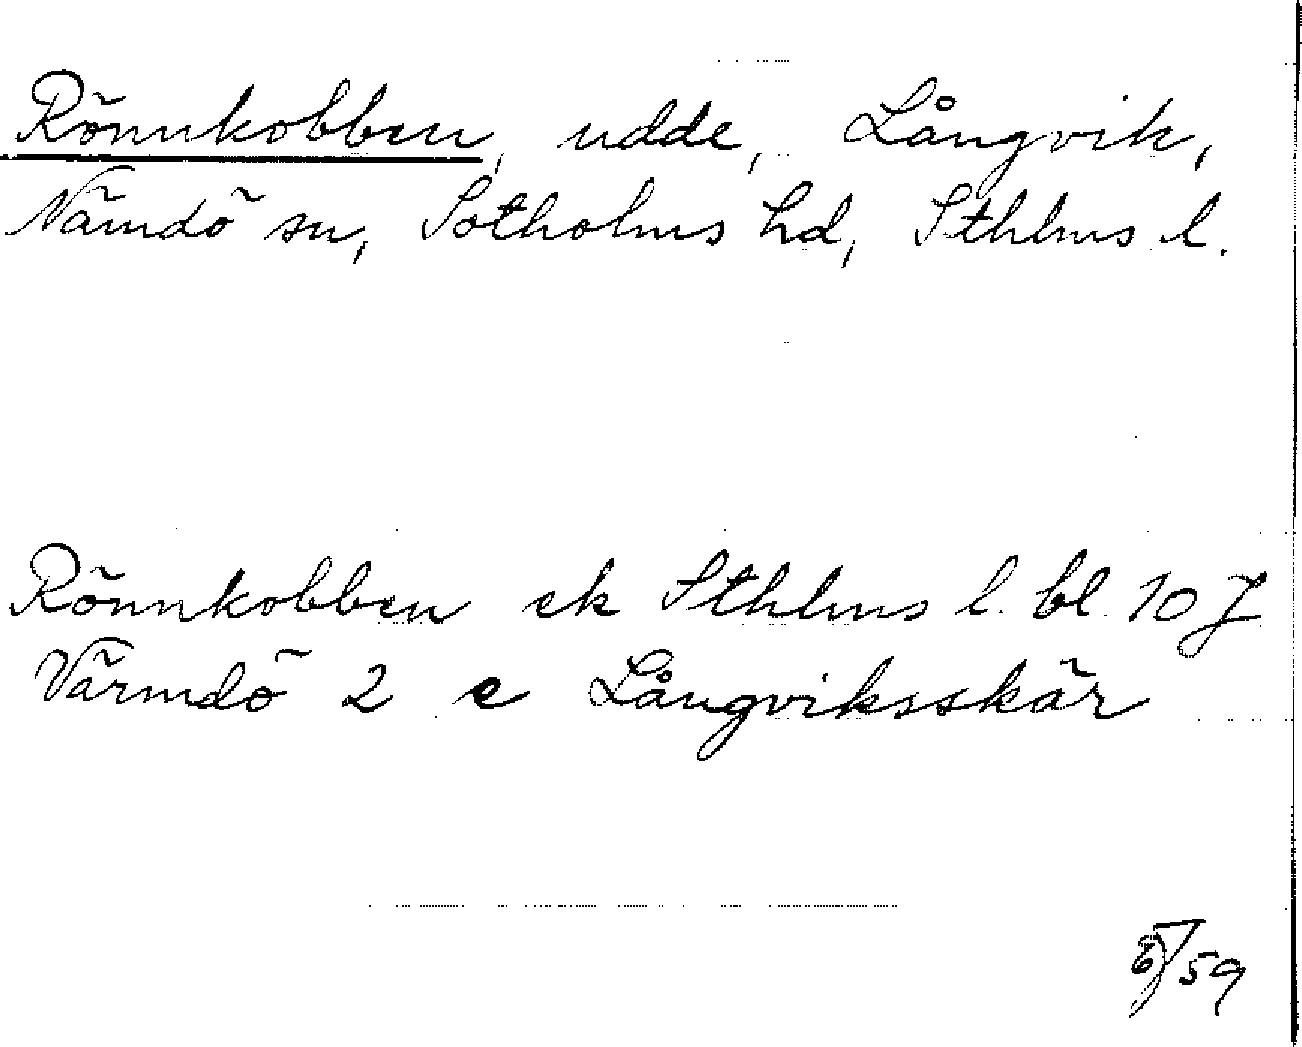 Rönnkobben, udde, Långvik,
Nämdö sn, Sotholms hd, Sthlms l.
Rönnkobben ek Sthlms l. bl. 10 J
Värmdö 2 c Långviksskär
59